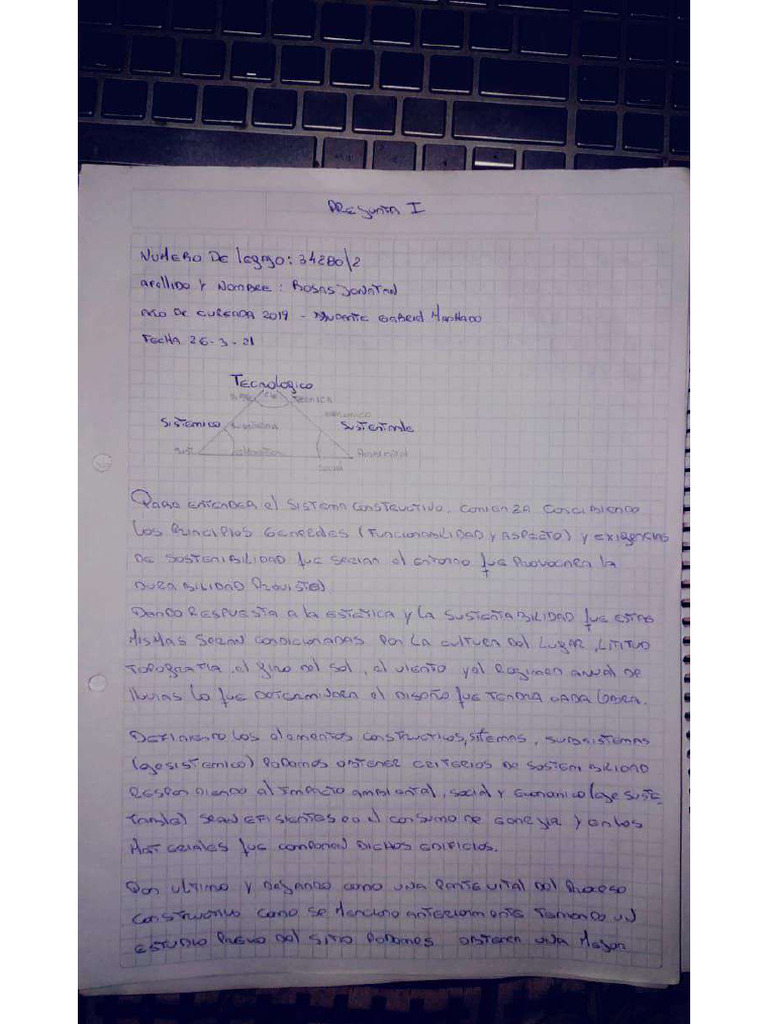 PREGUNTA I
NUMERO DE legajo: 34280/2
apellido y Nombre: Rosas Jonatan
Año DE CURSADA 2019 - Ayudante Gabriel Machado
FECHA 26-3-21
TECNOLOGICO
TECNICA
SISTEMICO
SUSTENTABLE
Subsistema
Ambiental
Social
Para entender el sistema constructivo, comienza concibiendo
los principios generales (Funcionabilidad y aspecto) y exigencias
de sostenibilidad que serian el entorno que provocara la
durabilidad prevista)
Dando respuesta a la estetica y la sustentabilidad que estas
mismas seran condicionadas por la cultura del lugar, latitud
topografia, el giro del sol, el viento y el regimen anual de
lluvias lo que determinara el diseño que tendra cada obra.
Definiendo los elementos constructivos, sitemas, subsistemas
(eje sistemico) podemos obtener criterios de sostenibilidad
respondiendo al impacto ambiental, social y economico (eje suste
ntable) sean efisientes en el consumo de energia y en los
materiales que componen dichos edificios.
Por ultimo y dejando como una parte vital del proceso
constructivo como se menciono anteriormente tomando un
estudio previo del sitio podemos obtener una mejor